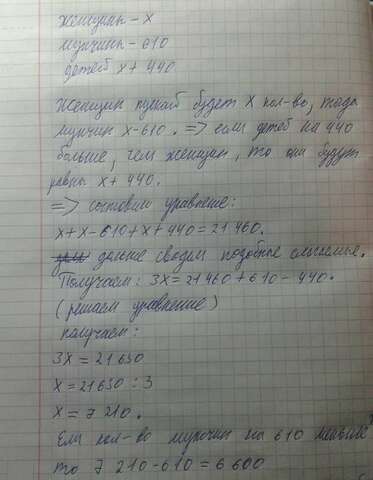 женщины - х
мужчины - 610
детей х + 440
Женщин пускай будет х кол-во, тогда
мужчин х-610. => если детей на 440
больше, чем женщин, то они будут
равны х + 440.
=> составим уравнение:
х+х-610+х+440=21460.
дальше сводим подобные слагаемые.
Получаем: 3х=21460+610-440.
(решаем уравнение)
получаем:
3х = 21630
х = 21630 : 3
х = 7 210.
Если кол-во мужчин на 610 меньше
то 7 210-610 = 6 600